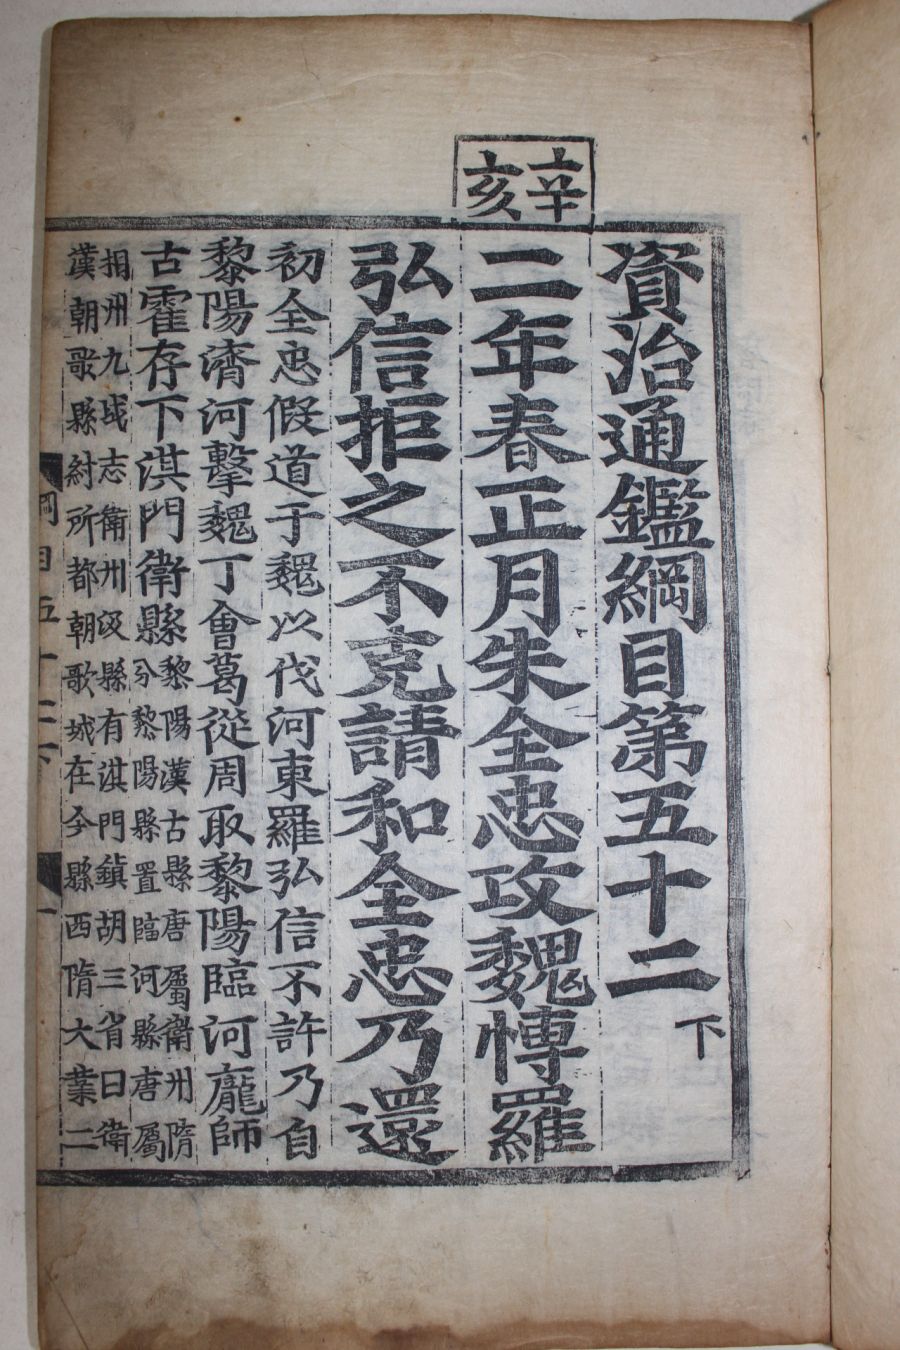 辛亥
資治通鑑綱目第五十二下
二年春正月朱全忠攻魏博羅
弘信拒之不克請和全忠乃還
初全忠假道于魏以伐河東羅弘信不許乃自
黎陽濟河擊魏丁會葛從周取黎陽臨河龐師
古霍存下淇門衛縣
黎陽漢古縣唐屬衛州隋
分黎陽縣置臨河縣唐屬
相州九域志衛州汲縣有淇門鎮胡三省曰衛
漢朝歌縣紂所都朝歌城在今縣西隋大業二
綱目五十二下
一